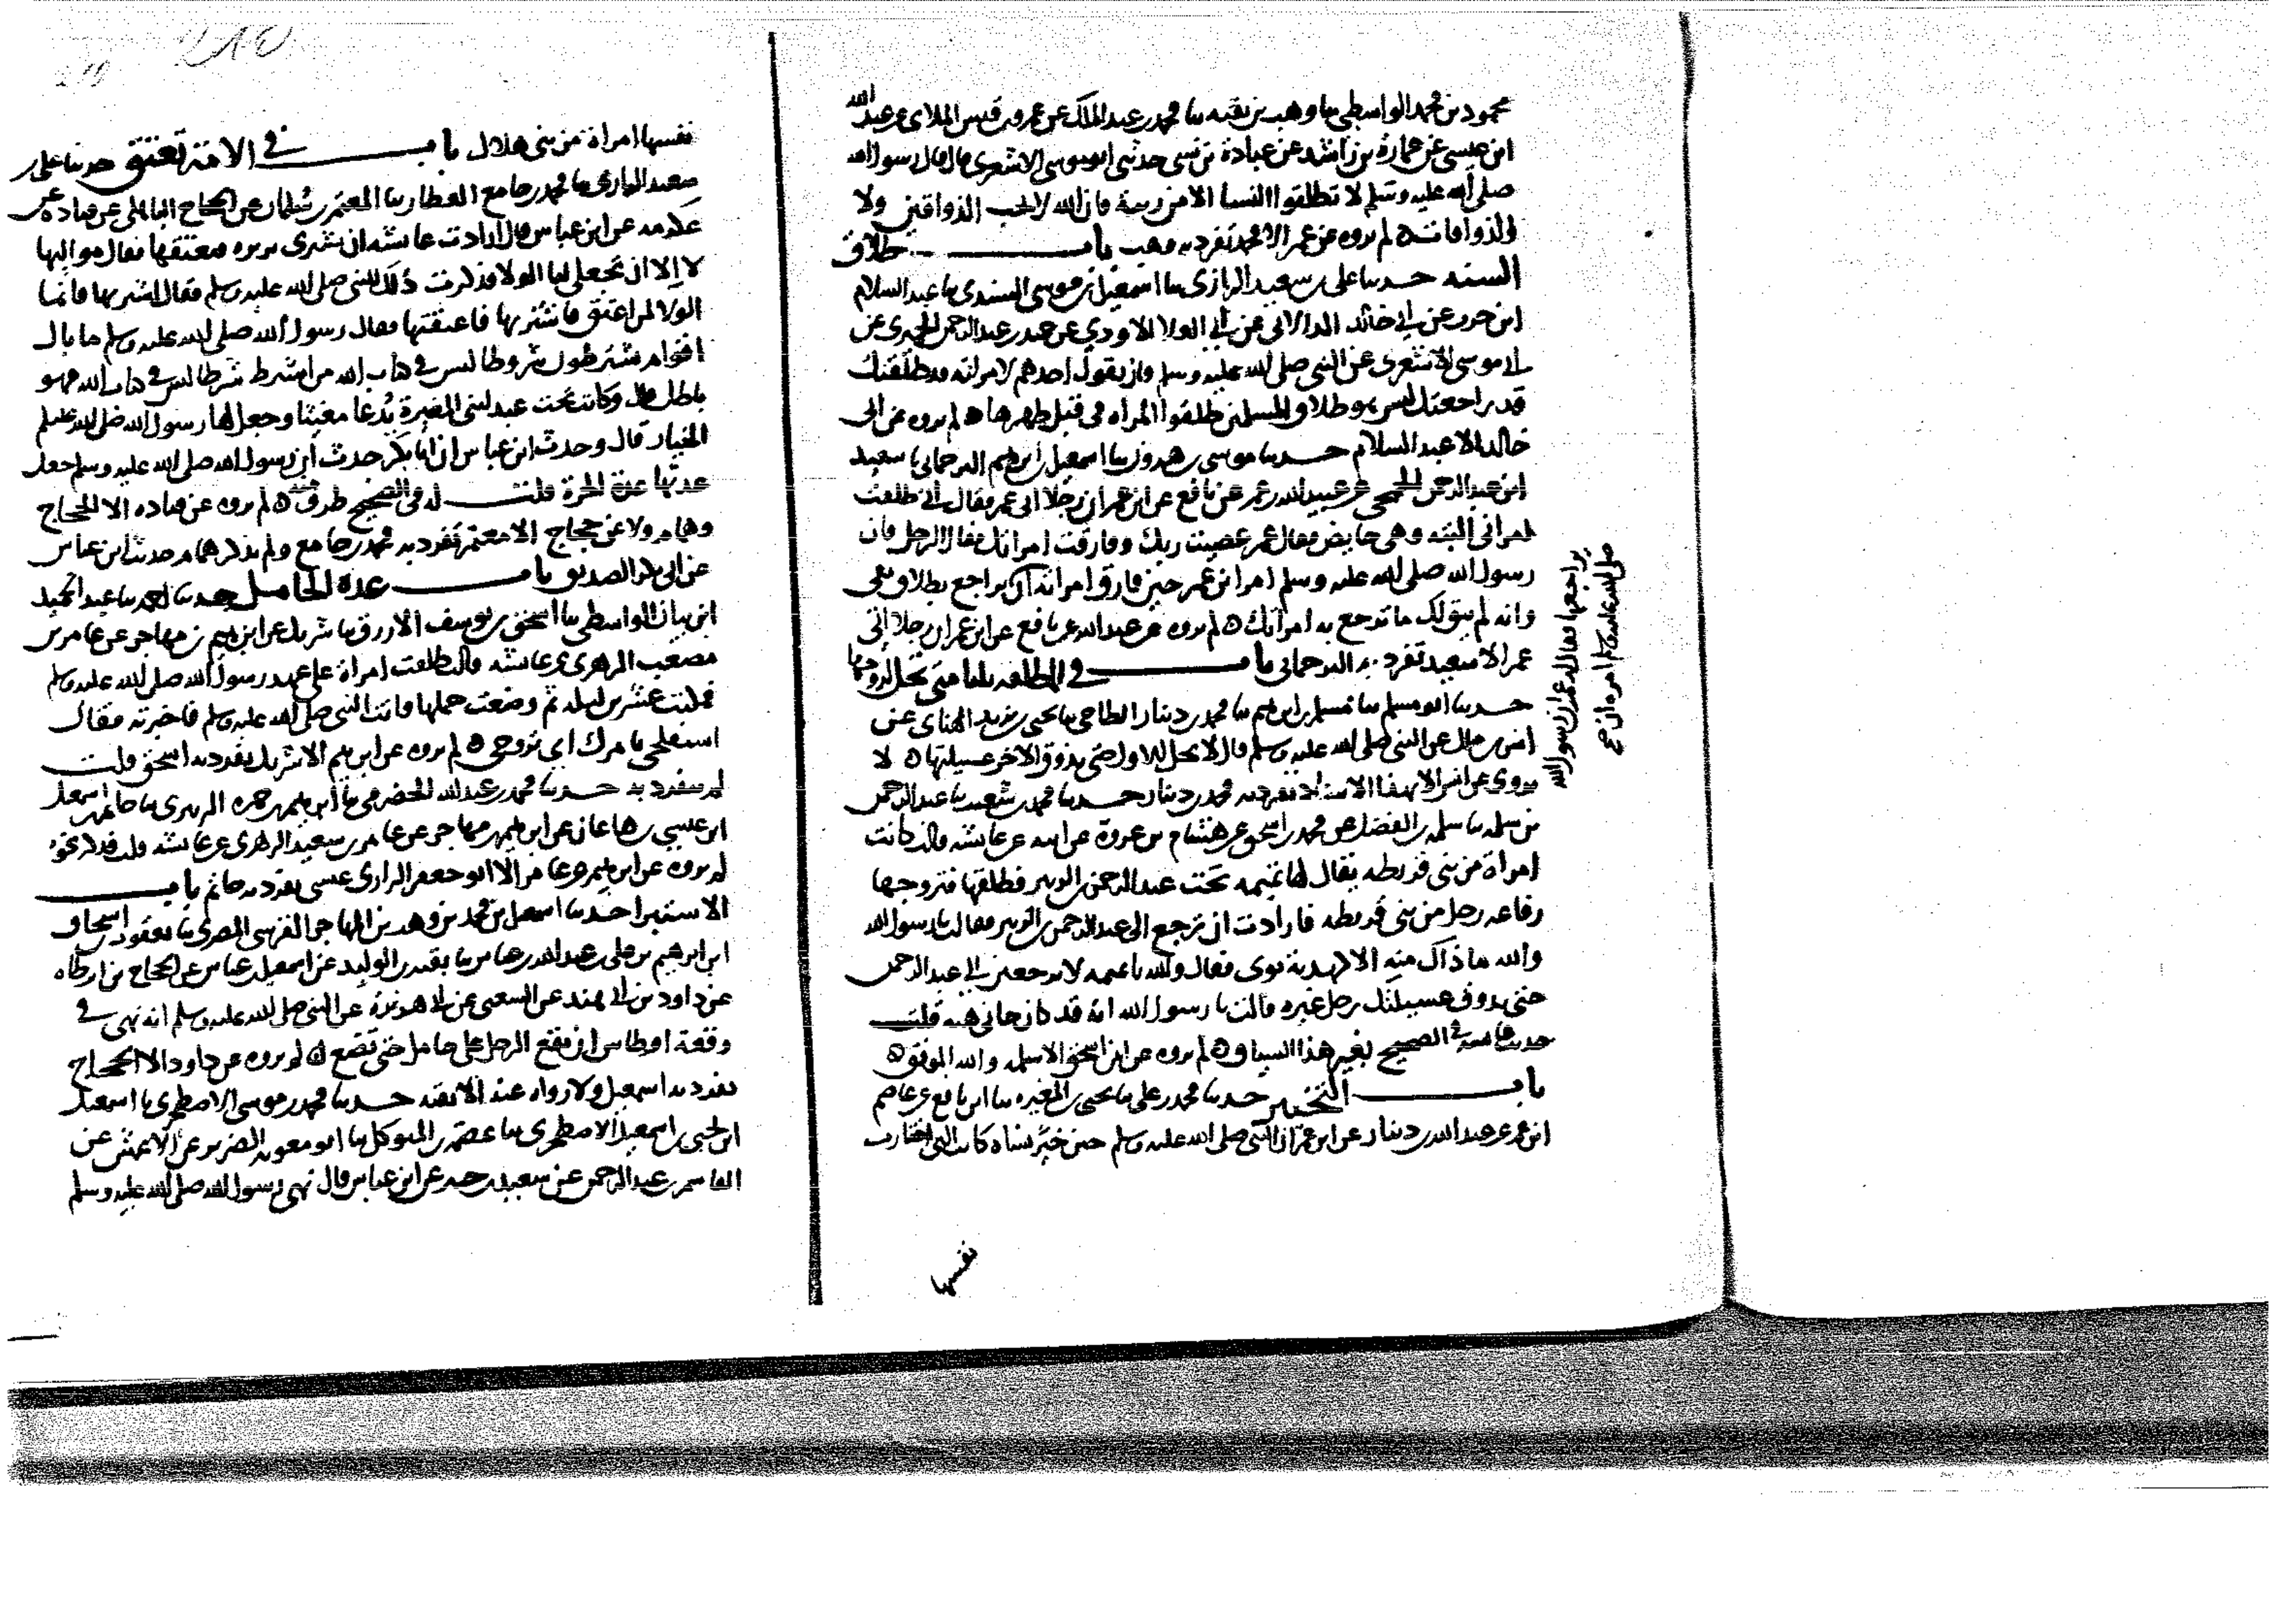 محمود بن محمد الواسطي ثنا وهب بن بقية ثنا محمد بن عبد الملك عن عمرو بن قيس الملائي عن عبد الله
ابن عيسى عن عمارة بن راشد عن عبادة بن نسي حدثني ابو موسى الاشعري قال قال رسول الله
صلى الله عليه وسلم لا تطلقوا النسا الا من ريبة فان الله لا يحب الذواقين ولا
الذواقات ه لم يروه عن عمرو الا محمد تفرد به وهب باب طلاق
السنه حدثنا علي بن سعيد الرازي ثنا اسمعيل بن موسى السدي ثنا عبد السلام
ابن حرب عن ابي خالد الدالاني عن ابي العلا الاودي عن حميد بن عبد الرحمن الحميري عن
ابي موسى الاشعري عن النبي صلى الله عليه وسلم قال يقول احدهم لامراته قد طلقتك
قد راجعتك ليس هو طلاق المسلمين طلقوا المراه في قبل طهرها ه لم يروه عن ابي
خالد الا عبد السلام حدثنا موسى بن هرون ثنا اسمعيل بن ابرهيم الترجماني ثنا سعيد
ابن عبد الرحمن الجمحي عن عبيد الله بن عمر عن نافع عن ابن عمر ان رجلا اتى عمر فقال اني طلقت
امراتي البته وهي حايض فقال عمر عصيت ربك وفارقت امراتك فقال الرجل فان
رسول الله صلى الله عليه وسلم امر ابن عمر حين فارق امراته ان يراجع بطلاق بقي
وانه لم يبق لك ما ترجع به امراتك ه لم يروه عن عبيد الله عن نافع عن ابن عمر ان رجلا اتى
عمر الا سعيد تفرد به الترجماني باب في المطلقه ثلثا متى تحل لزوجها
حدثنا ابو مسلم ثنا مسلم بن ابرهيم ثنا محمد بن دينار الطاحي ثنا يحيى بن يزيد الهنائي عن
انس بن مالك عن النبي صلى الله عليه وسلم قال لا تحل للاول حتى يذوق الاخر عسيلتها ه لا
يروى عن انس الا بهذا الاسناد تفرد به محمد بن دينار حدثنا محمد بن شعيب ثنا عبد الرحمن
بن سلمه ثنا سلمه بن الفضل عن محمد بن اسحق عن هشام بن عروة عن ابيه عن عائشه قالت كانت
امراة من بني قريظه يقال لها تميمه تحت عبد الرحمن بن الزبير فطلقها فتزوجها
رفاعه رجل من بني قريظه فارادت ان ترجع الى عبد الرحمن بن الزبير فقالت يا رسول الله
والله ما ذاك منه الا كهدبة ثوبي فقال والله يا تميمه لا ترجعين الى عبد الرحمن
حتى يذوق عسيلتك رجل غيره قالت يا رسول الله انه قد كان جاني هبه قلت
حديثها في الصحيح بغير هذا السياق ه لم يروه عن ابن اسحق الا سلمه والله الموفق ه
باب التخيير حدثنا محمد بن علي ثنا يحيى بن المغيره ثنا ابن نافع عن عاصم
ابن عمر عن عبد الله بن دينار عن ابن عمر ان النبي صلى الله عليه وسلم حين خير نساه كانت التي اختارت
نفسها
يراجعها فقال له عمر ان رسول الله
صلى الله عليه وسلم امره ان
نفسها امراة من بني هلال باب في الامة تعتق حدثنا علي بن
سعيد الرازي ثنا محمد بن جامع العطار ثنا المعتمر بن سليمان عن الحجاج الباهلي عن قتادة عن
عكرمه عن ابن عباس قال ارادت عائشه ان تشتري بريره فتعتقها فقال مواليها
لا الا ان تجعلي لنا الولا فذكرت ذلك للنبي صلى الله عليه وسلم فقال اشتريها فانما
الولا لمن اعتق فاشترتها فاعتقتها فقال رسول الله صلى الله عليه وسلم ما بال
اقوام يشترطون شروطا ليس في كتاب الله من اشترط شرطا ليس في كتاب الله فهو
باطل قال وكانت تحت عبد لبني المغيرة يدعا مغيثا وجعل لها رسول الله صلى الله عليه وسلم
الخيار قال وحدث ابن عباس ان ابا بكر حدث ان رسول الله صلى الله عليه وسلم جعل
عدتها عدة الحرة قلت له في الصحيح طرق ه لم يروه عن قتاده الا الحجاج
وهمام ولا عن حجاج الا معتمر تفرد به محمد بن جامع ولم يذكر همام حديث ابن عباس
عن ابي بكر الصديق باب عدة الحامل حدثنا احمد ثنا عبد الحميد
ابن بيان الواسطي ثنا اسحق بن يوسف الازرق ثنا شريك عن ابرهيم بن مهاجر عن عامر بن
مصعب الزهري عن عائشه قالت طلقت امراة على عهد رسول الله صلى الله عليه وسلم
فمكثت عشرين ليله ثم وضعت حملها فاتت النبي صلى الله عليه وسلم فاخبرته فقال
استفلحي بامرك اي تزوجي ه لم يروه عن ابرهيم الا شريك تفرد به اسحق قلت
لم يتفرد به حدثنا محمد بن عبد الله الحضرمي ثنا ابرهيم بن حمزه الزبيري ثنا حاتم بن اسمعيل
ابن عيسى بن ماهان عن ابرهيم بن مهاجر عن عامر بن سعيد الزهري عن عائشه قلت فذكر نحوه
لم يروه عن ابرهيم عن عامر الا ابو جعفر الرازي عيسى تفرد به حاتم باب
الاستبرا حدثنا اسمعيل بن محمد بن وهب بن المهاجر القرشي المصري ثنا يعقوب بن اسحاق
ابن ابرهيم بن علي بن عبد الله بن عباس ثنا بقيه بن الوليد عن اسمعيل بن عياش عن الحجاج بن ارطاه
عن داود بن ابي هند عن الشعبي عن ابي هريرة عن النبي صلى الله عليه وسلم انه نهى في
وقعة اوطاس ان يقع الرجل على حامل حتى تضع ه لم يروه عن داود الا الحجاج
تفرد به اسمعيل ولا رواه عنه الا بقيه حدثنا محمد بن موسى الاصطخري ثنا اسمعيل
ابن يحيى بن اسمعيل الاصطخري ثنا عصمه بن المتوكل ثنا ابو معويه الضرير عن الاعمش عن
القاسم بن عبد الرحمن عن سعيد بن جبير عن ابن عباس قال نهى رسول الله صلى الله عليه وسلم